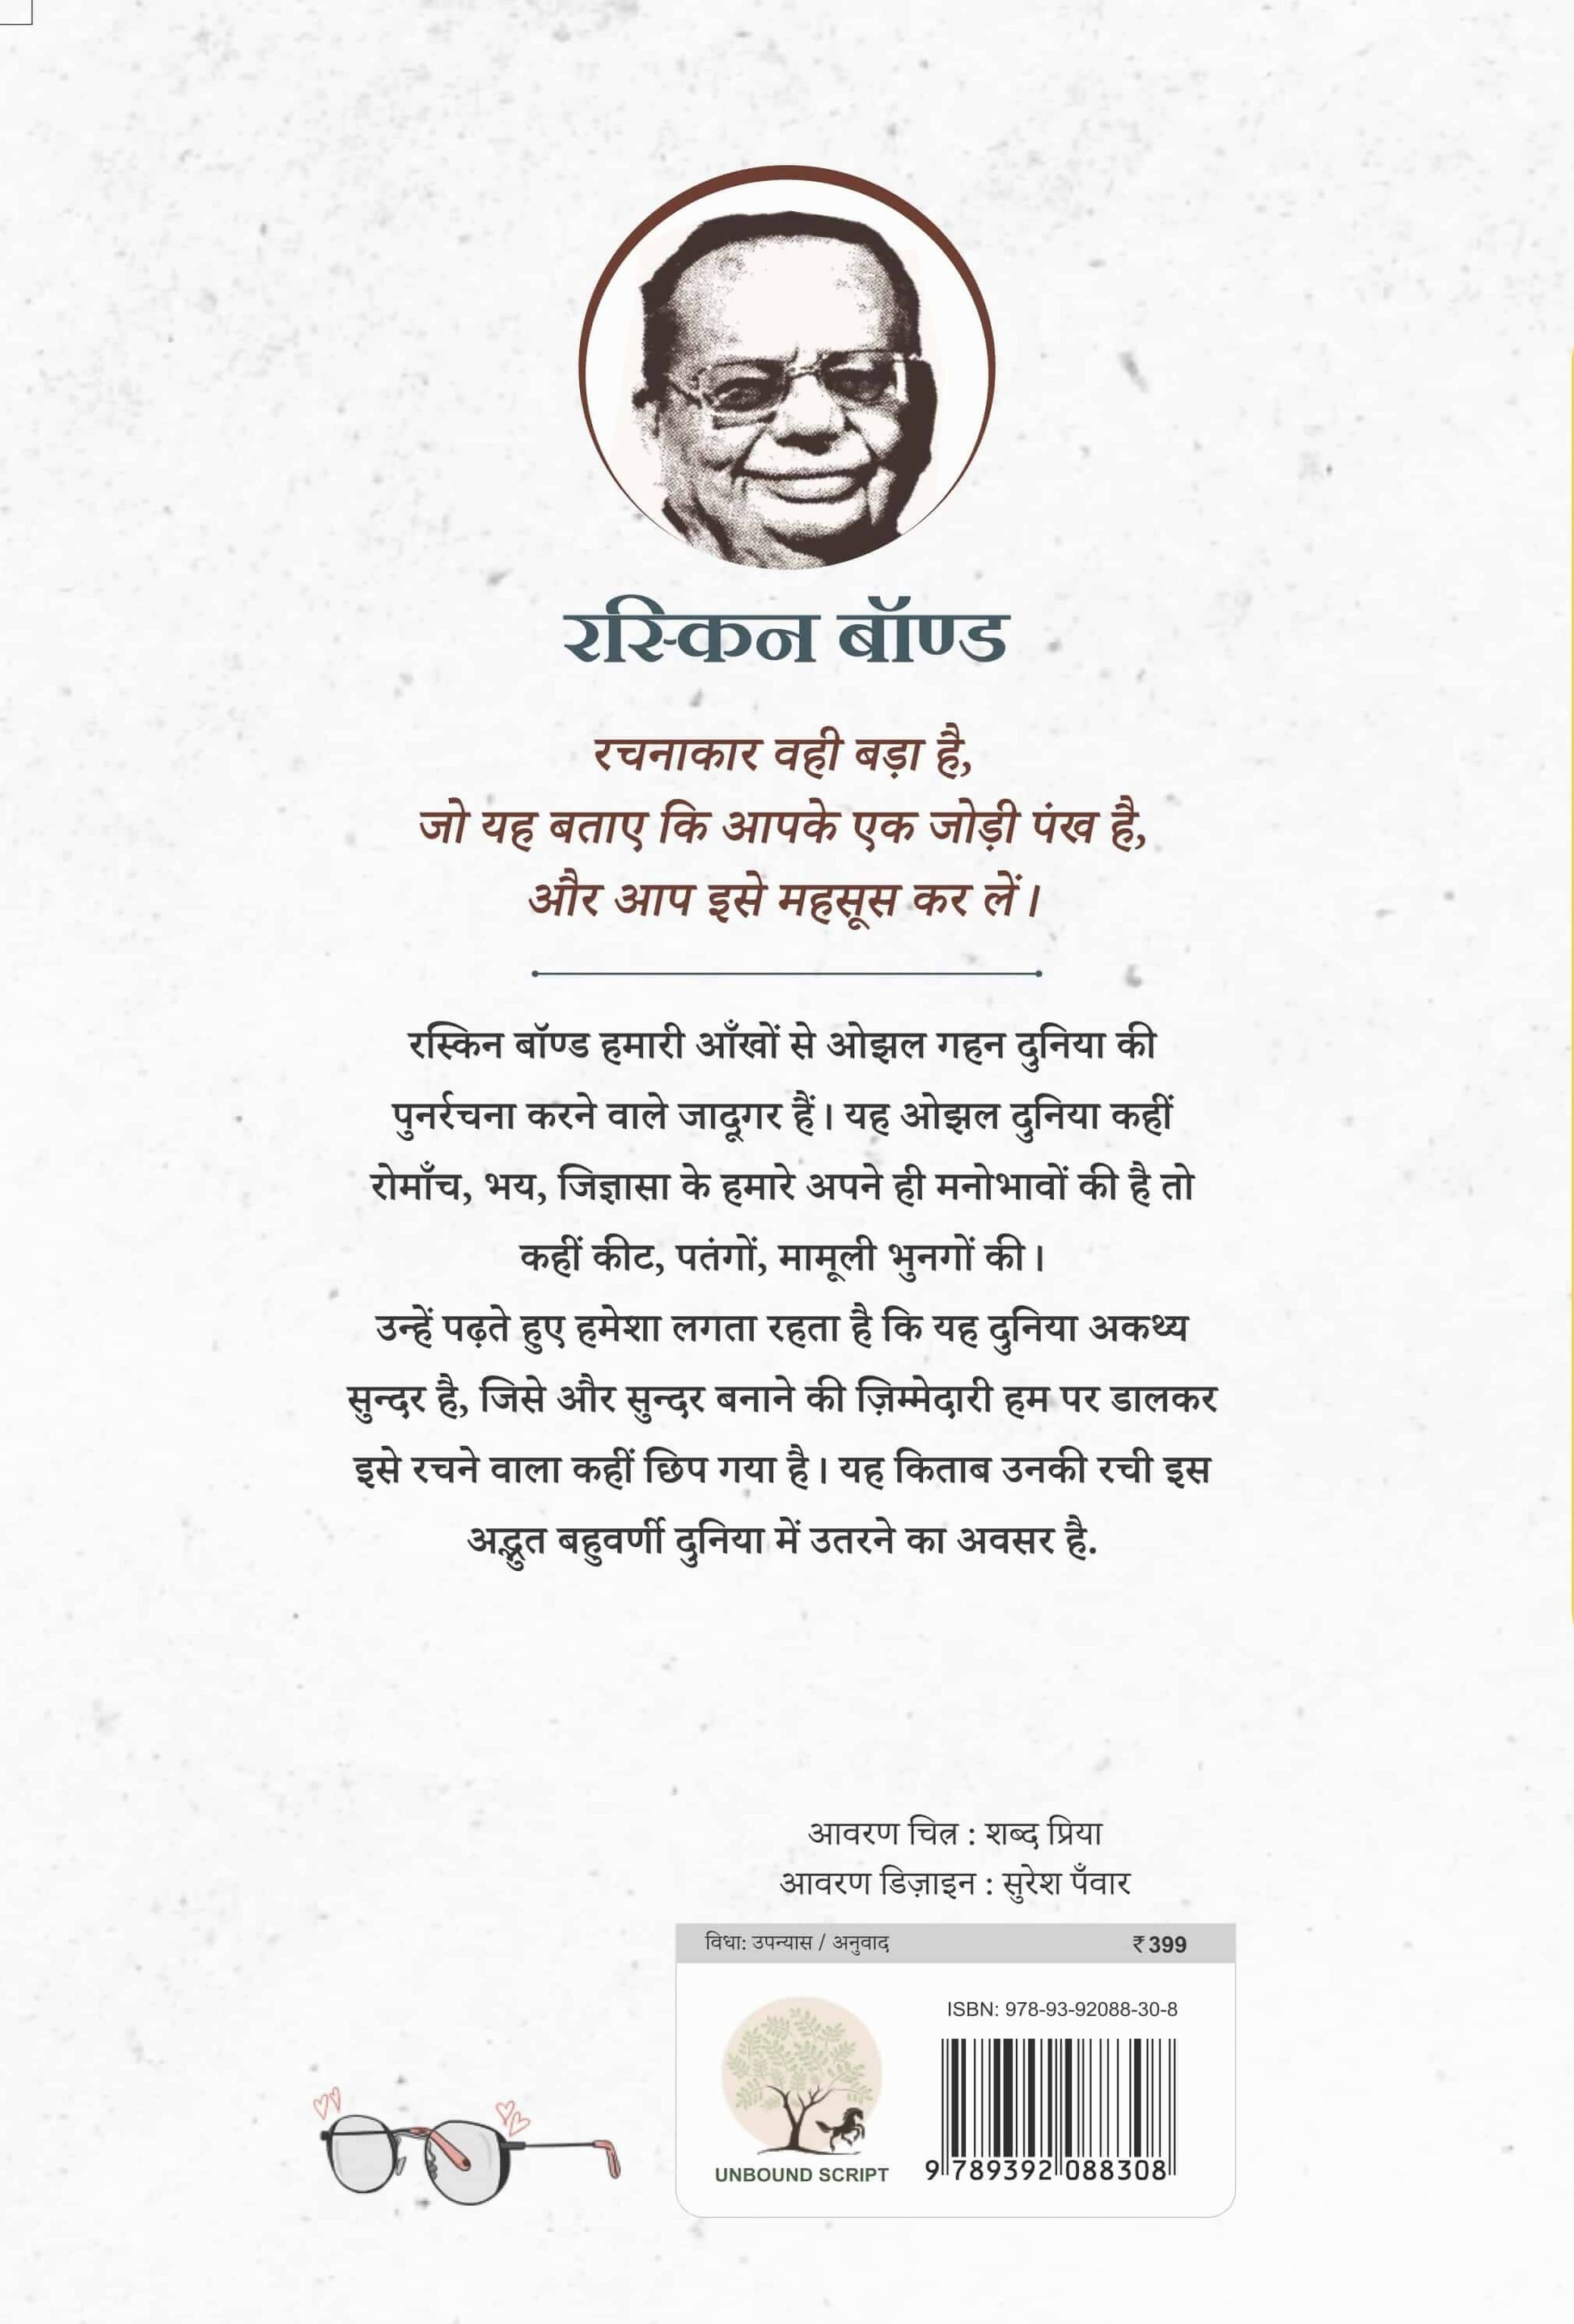 रस्किन बॉण्ड
रचनाकार वही बड़ा है,
जो यह बताए कि आपके एक जोड़ी पंख है,
और आप इसे महसूस कर लें।
रस्किन बॉण्ड हमारी आँखों से ओझल गहन दुनिया की
पुनर्रचना करने वाले जादूगर हैं। यह ओझल दुनिया कहीं
रोमाँच, भय, जिज्ञासा के हमारे अपने ही मनोभावों की है तो
कहीं कीट, पतंगों, मामूली भुनगों की।
उन्हें पढ़ते हुए हमेशा लगता रहता है कि यह दुनिया अकथ्य
सुन्दर है, जिसे और सुन्दर बनाने की ज़िम्मेदारी हम पर डालकर
इसे रचने वाला कहीं छिप गया है। यह किताब उनकी रची इस
अद्भुत बहुवर्णी दुनिया में उतरने का अवसर है.
आवरण चित्र : शब्द प्रिया
आवरण डिज़ाइन : सुरेश पँवार
विधा: उपन्यास / अनुवाद ₹399
ISBN: 978-93-92088-30-8
UNBOUND SCRIPT
9 789392 088308